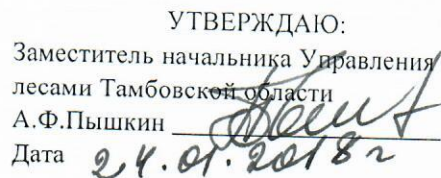 УТВЕРЖДАЮ:
Заместитель начальника Управления
лесами Тамбовской области
А.Ф.Пышкин
Дата 24.01.2018 г